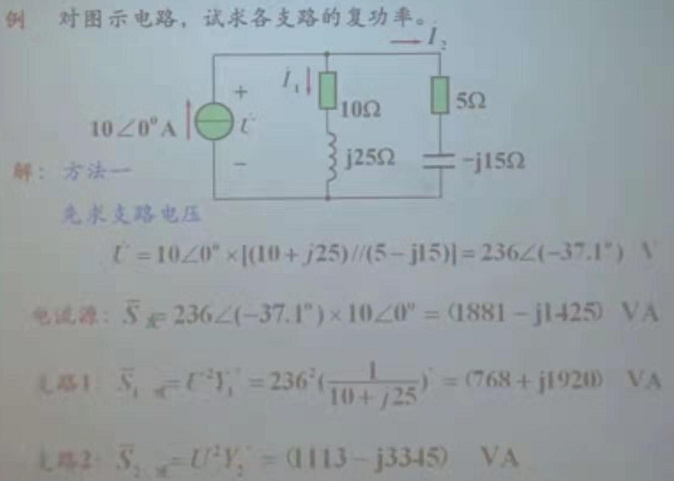 例 对图示电路，试求各支路的复功率。
İ₂
+ İ₁ 10Ω 5Ω
10∠0°A U̇
− j25Ω -j15Ω
解：方法一
先求支路电压
U̇ = 10∠0° ×[(10 + j25)//(5 − j15)] = 236∠(−37.1°) V
电流源：S̅发= 236∠(−37.1°) × 10∠0° = (1881 − j1425) VA
支路1 S̅₁吸 = U²Y₁* = 236²(1/(10 + j25))* = (768 + j1920) VA
支路2 S̅₂吸 = U²Y₂* = (1113 − j3345) VA